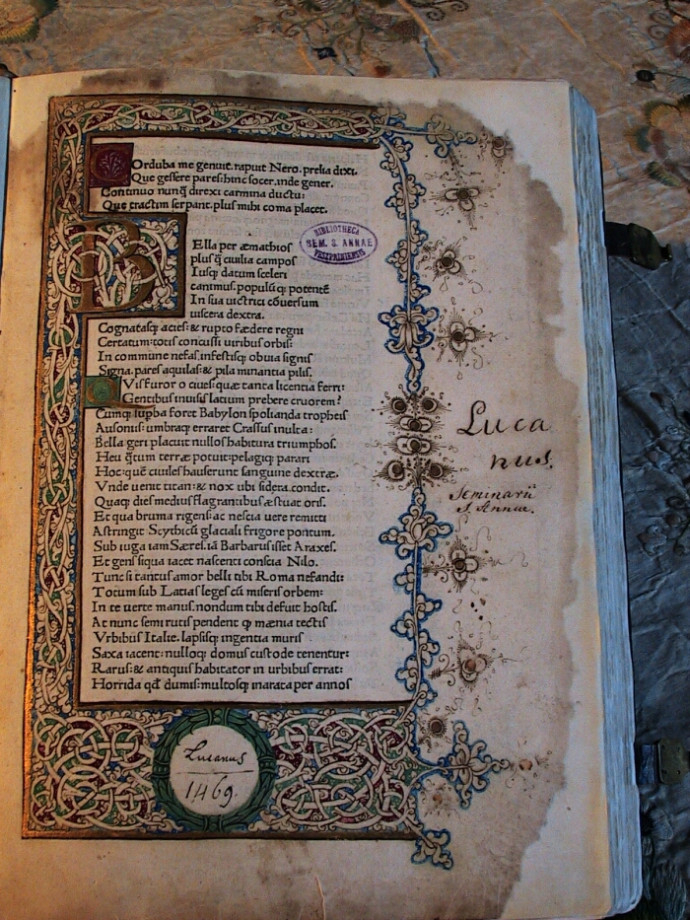 Orduba me genuit. rapuit Nero. prelia dixi.
Que gessere pares hinc socer. inde gener.
Continuo nunq̄ direxi carmina ductu:
Que tractim serpant. plus mihi coma placet.
BElla per æmathios
plus q̄ ciuilia campos
Iusq; datum sceleri
canimus. populū q; potentē
In sua uictrici cōuersum
uiscera dextra.
Cognatasq; acies: & rupto fœdere regni
Certatum: totis concussi uiribus orbis:
In commune nefas. infestisq; obuia signis
Signa. pares aquilas: & pila minantia pilis.
Vis furor o ciues quæ tanta licentia ferri:
Gentibus inuisis latium prebere cruorem?
Cumq; supba foret Babylon spolianda tropheis
Ausoniis: umbraq; erraret Crassus inulta:
Bella geri placuit nullos habitura triumphos.
Heu q̄tum terræ potuit: pelagiq; parari
Hoc: quē ciuiles hauserunt sanguine dextræ.
Vnde uenit titan: & nox ubi sidera condit.
Quaq; dies medius flagrantibus æstuat oris.
Et qua bruma rigens: ac nescia uere remitti
Astringit Scythicū glaciali frigore pontum.
Sub iuga iam Særes. iā Barbarus isset Araxes.
Et gens siqua iacet nascenti conscia Nilo.
Tunc si tantus amor belli tibi Roma nefandi:
Totum sub Latias leges cū miseris orbem:
In te uerte manus. nondum tibi defuit hostis.
At nunc semirutis pendent q̄ mænia tectis
Vrbibus Italie. lapsisq; ingentia muris
Saxa iacent: nulloq; domus custode tenentur:
Rarus: & antiquis habitator in urbibus errat:
Horrida qđ dumis: multosq; inarata per annos
BIBLIOTHECA
SEM. S. ANNAE
VESZPRIMIENSIS
Luca
nus.
Seminarii
S. Annae.
Lucanus
1469.